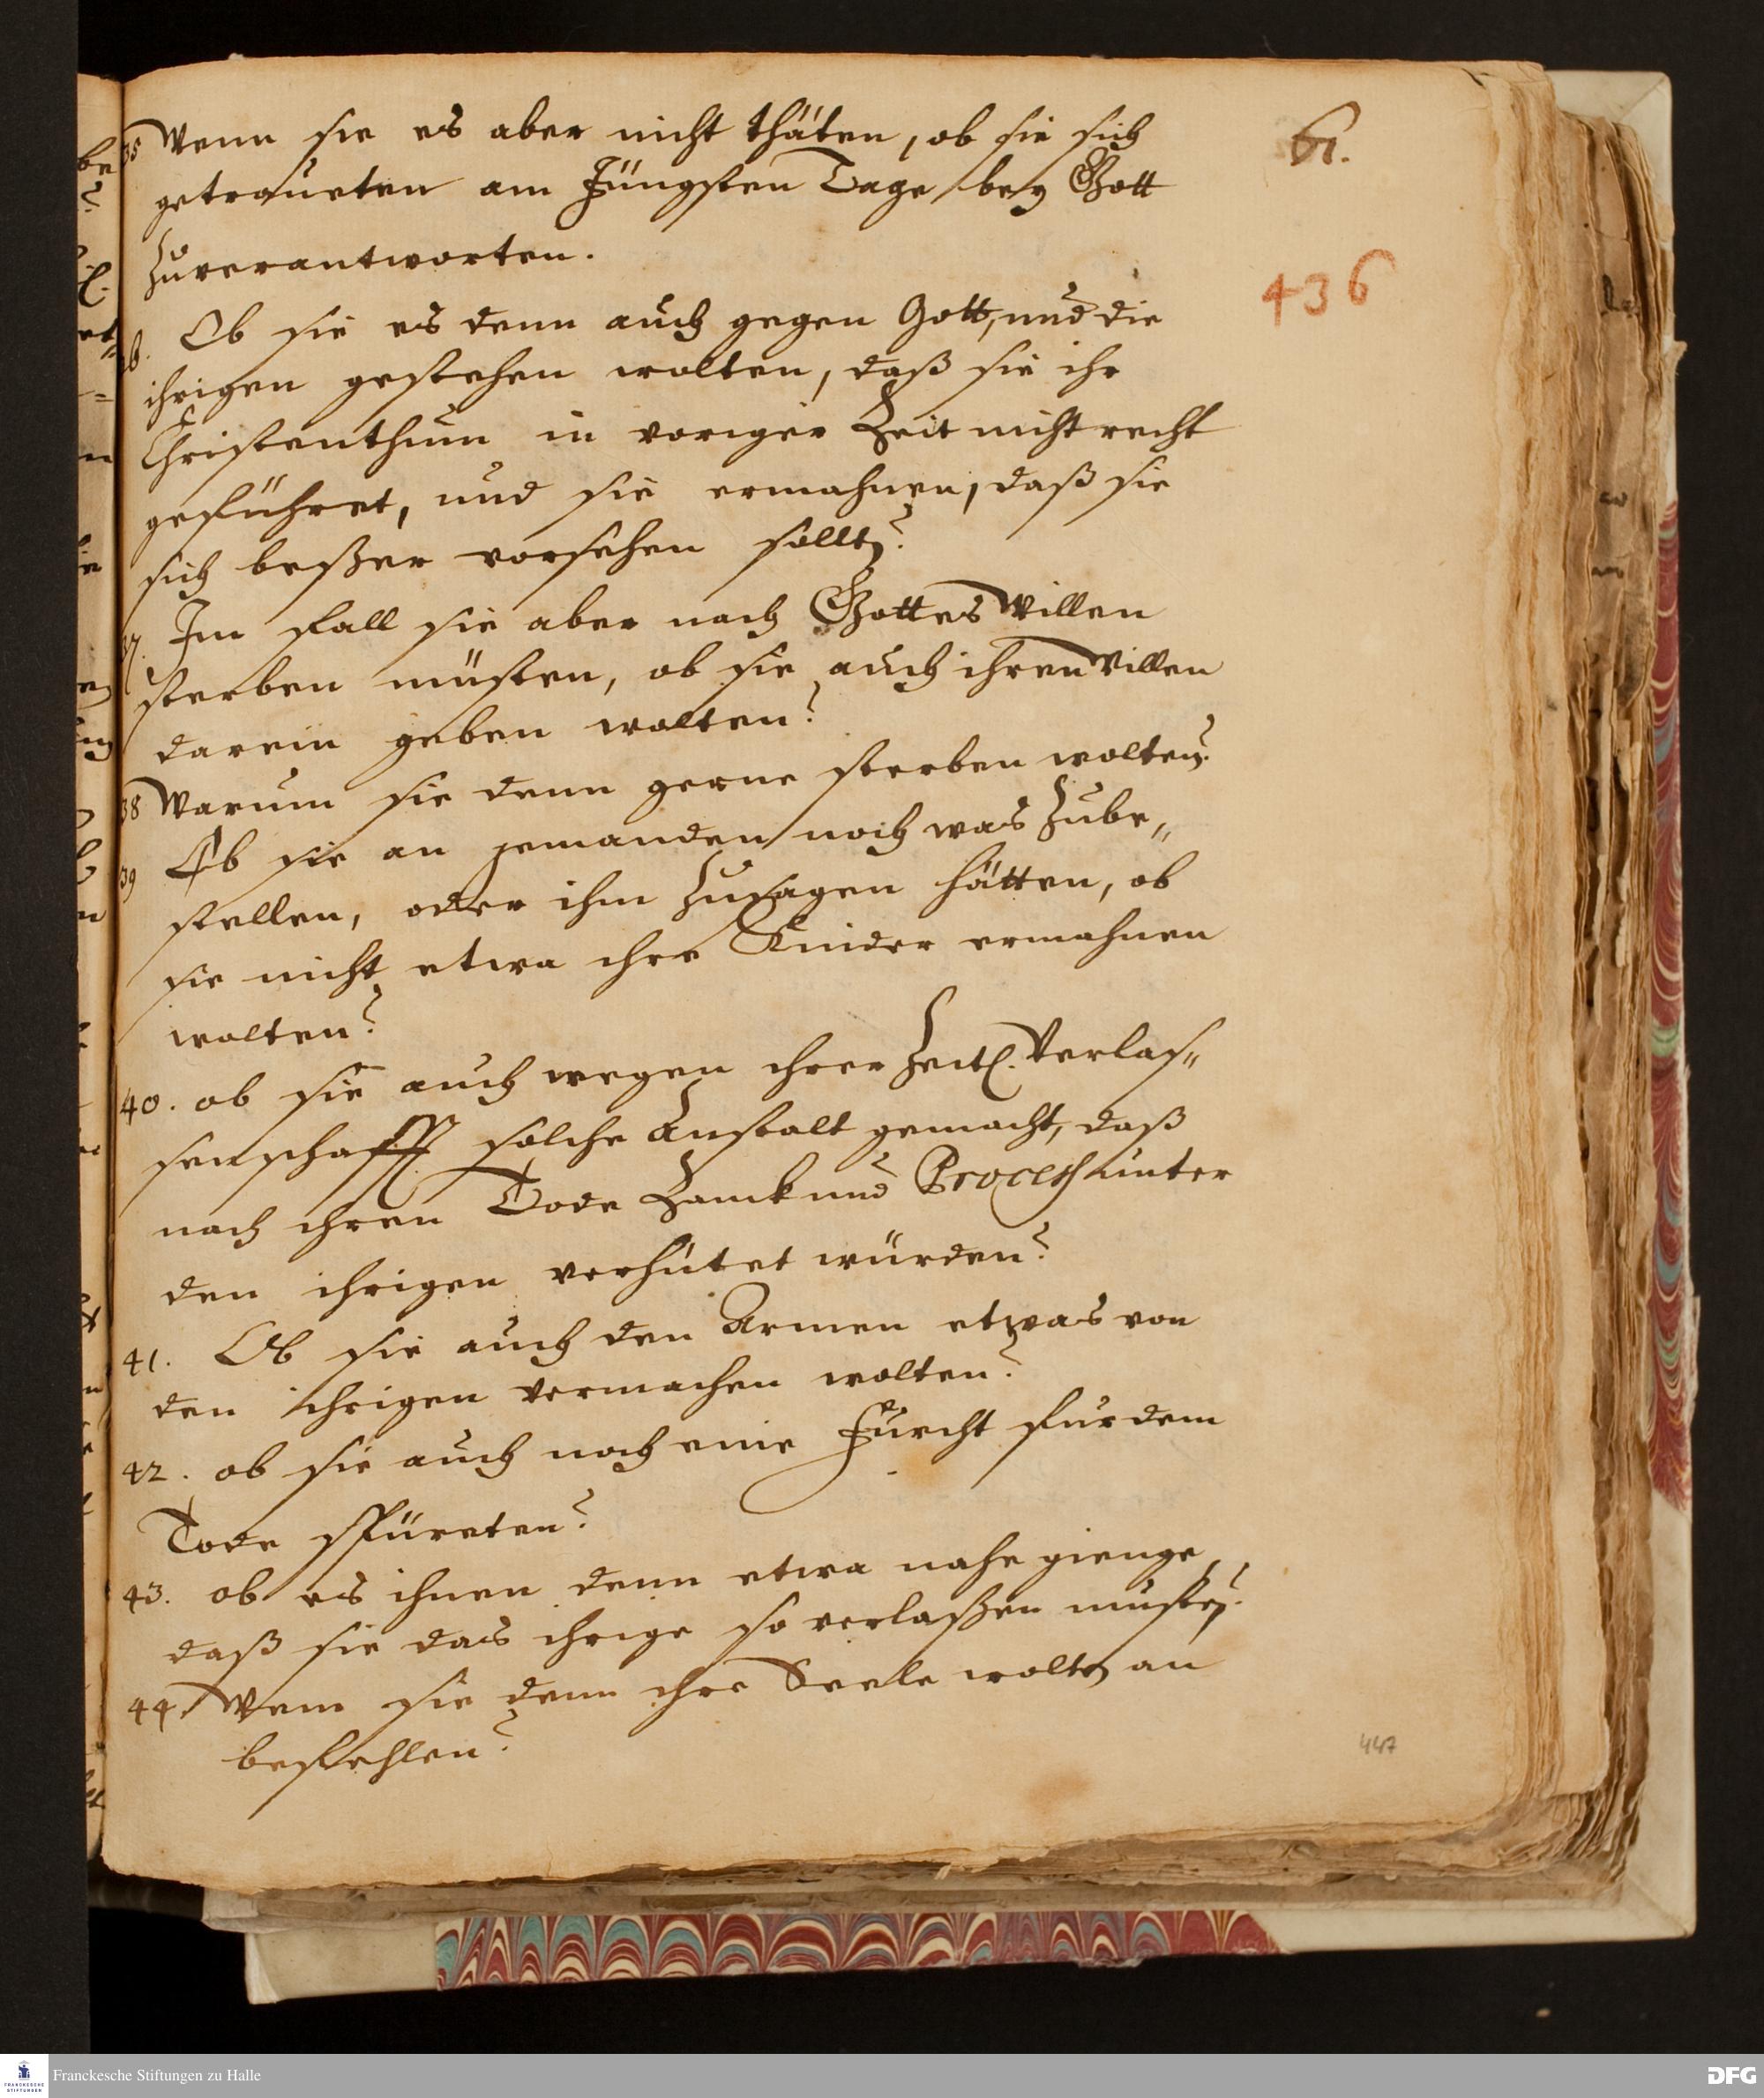 61.
436
35 Wenn sie es aber nicht thäten, ob sie sich
getraueten am Jüngsten Tage bey Gott
zuverantworten.
Ob sie es denn auch gegen Gott, und die
ihrigen gestehen wolten, daß sie ihr
Christenthum in voriger Zeit nicht recht
geführet, und sie ermahnen, daß sie
sich beßer vorsehen sollten?
37. Im fall sie aber nach Gottes Willen
sterben müsten, ob sie auch ihren Willen
darein geben wolten?
38 Warum sie denn gerne sterben wolten?
39 Ob sie an jemanden noch was zube„
stellen, oder ihm zusagen hätten, ob
sie nicht etwa ihre Kinder ermahnen
wolten?
40. ob sie auch wegen ihrer Zeitl. Verlas„
senschafft solche Anstalt gemacht, daß
nach ihren Tode Zanck und Process unter
den ihrigen verhütet würden?
41. Ob sie auch den Armen etwas von
den ihrigen vermachen wolten?
42. ob sie auch noch eine Furcht fur dem
Tode spüreten?
43. ob es ihnen denn etwa nahe gienge,
daß sie das ihrige so verlaßen musten?
44. Wem sie denn ihre Seele wolten an
befehlen?
447
Franckesche Stiftungen zu Halle
FRANCKESCHE
STIFTUNGEN
DFG